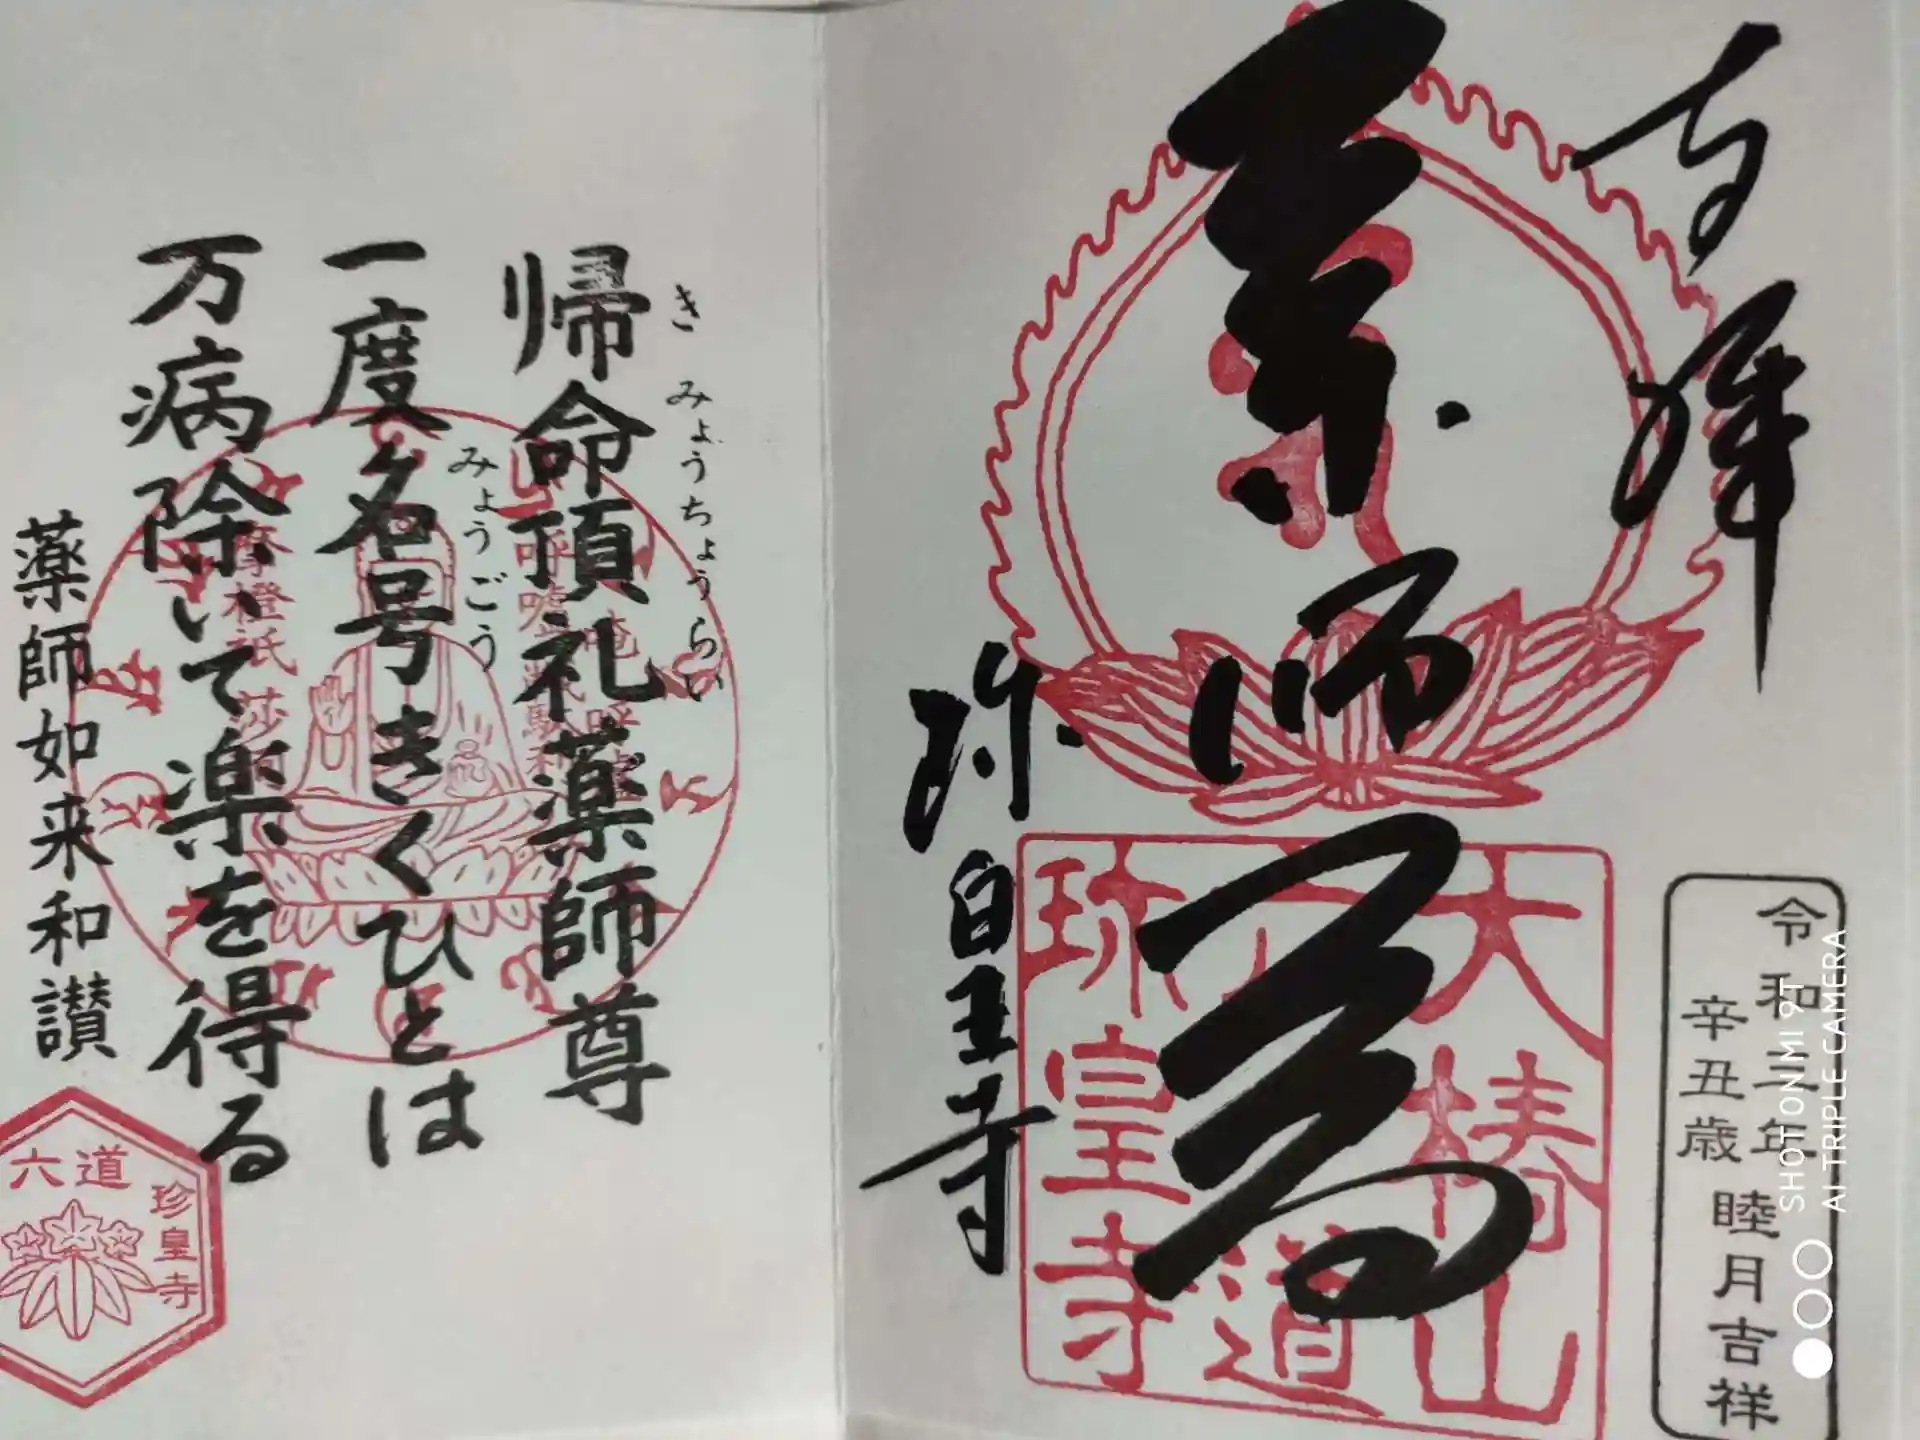 奉拝
薬師尊
珎皇寺
大椿山
六道
珎皇寺
令和三年
辛丑歳
睦月吉祥
帰命頂礼薬師尊
き みょうちょうらい
一度名号きくひとは
みょうごう
万病除いて楽を得る
薬師如来和讃
六道
珍皇寺
SHOT ON MI 9T
AI TRIPLE CAMERA